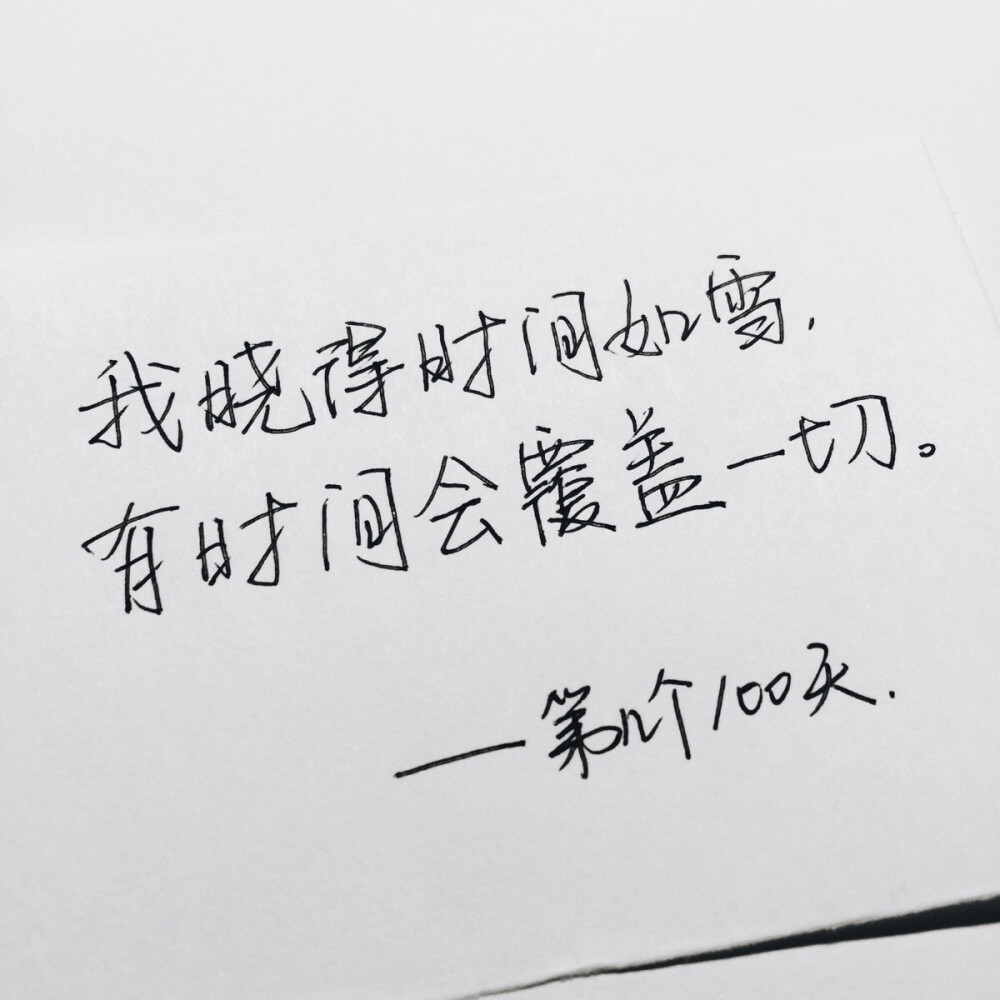 我晓得时间如雪,
有时间会覆盖一切。
——第几个100天.